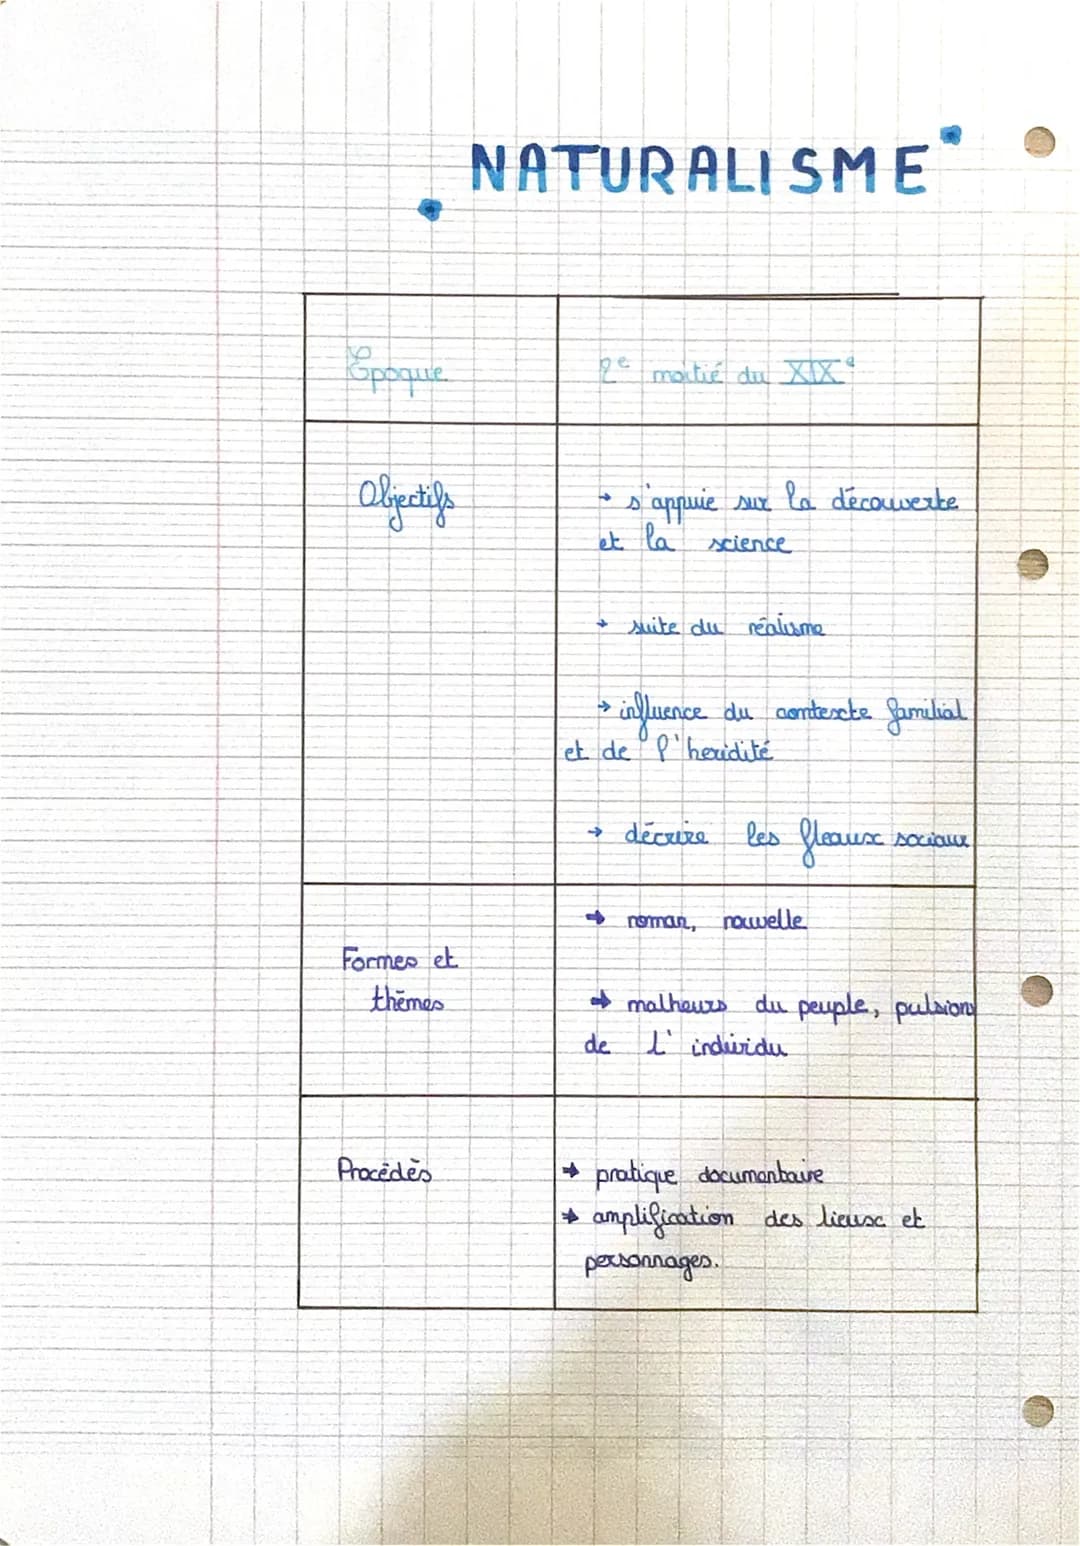 NATURALISME
Époque
2e moitié du XIXe
Objectifs
→ s'appuie sur la découverte
et la science
→ suite du réalisme
→ influence du contexte familial
et de l'heridité
→ décrire les fleaux sociaux
Formes et
thèmes
→ roman, nouvelle
→ malheurs du peuple, pulsions
de l'individu
Procédès
→ pratique documentaire
→ amplification des lieux et
personnages.